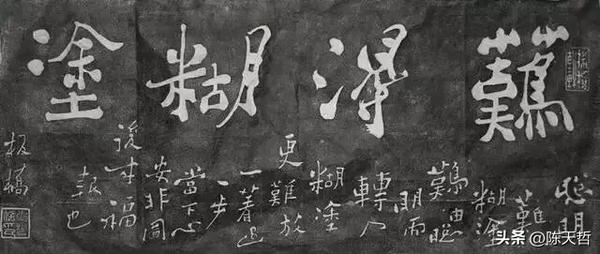 難得糊塗
聰明
難
糊塗
難由聰
明而
轉入
糊塗
更難放
一著退
一步
當下心
安非圖
後来福
報也
板橋
头条 @陈天哲